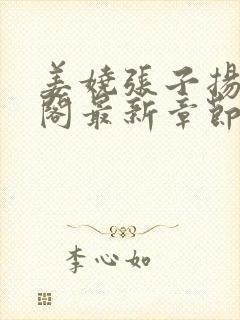 姜嬈張子揚
閣最新章節
李心如